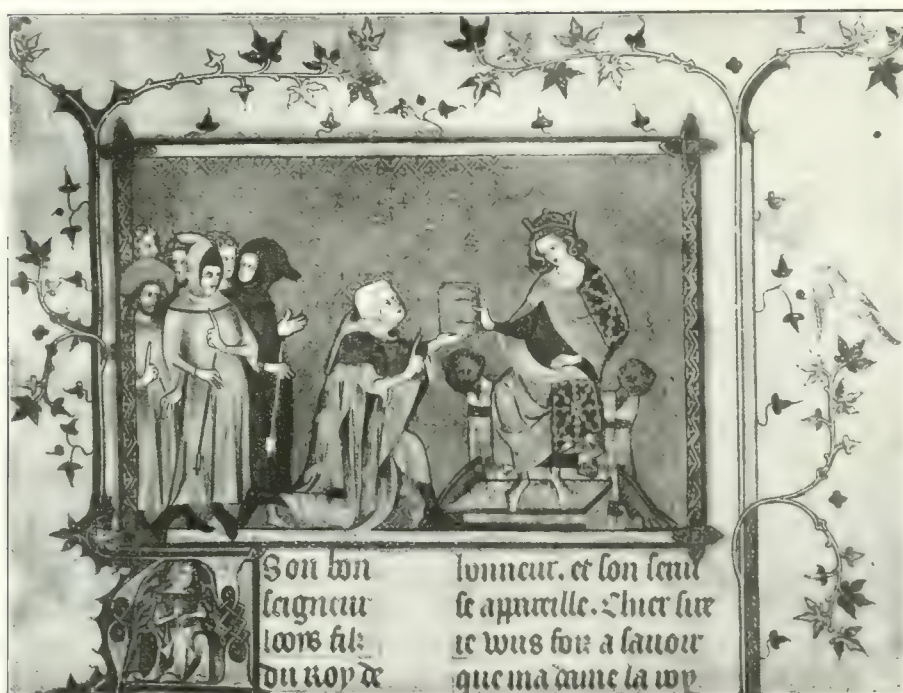 1
A Son bon
seigneur
looys filz
du roy de
honneur. et son servi
se appareille. Chier sire
ie vous foiz a savoir
que ma dame la roy